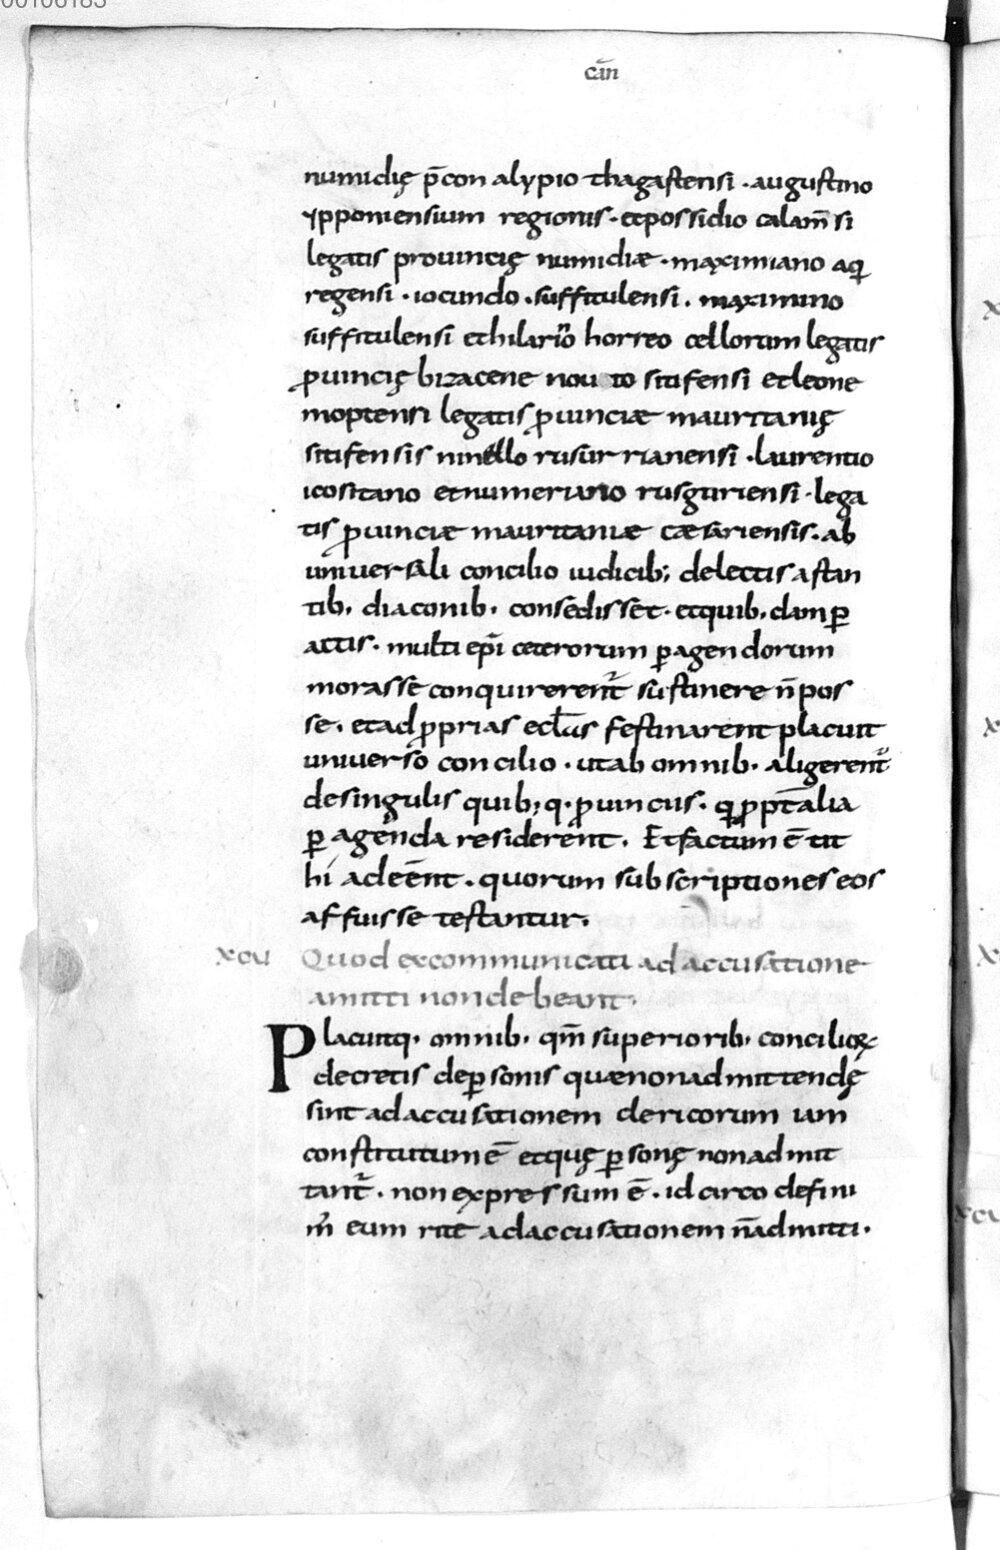 00106183
cān
numidię p̄con alypio thagastensi · augustino
ypponiensium regionis · et possidio calam̄ si
legatis prouincię numidiæ · maximiano aq̇
regensi · iocundo · suffitulensi · maximino
suffitulensi et hilario horreo cellorum legatis
ꝓuincię bizacene nouato sitifensi et leone
moptensi legatis ꝓuinciæ mauritanię
sitifensis ninello rusurrianensi · laurentio
icositano et numeriano rusguriensi · lega
tis ꝓuinciæ mauritaniæ cæsariensis · ab
uniuersali concilio iudicib; delectis astan
tib, diaconib, consedisset · et quib, dam ꝑ
actis · multi ep̄i ceterorum ꝑagendorum
moras se conquirerent᷑ sustinere n̄ pos
se, et ad ꝓprias eclas̄ festinarent placuit
uniuerso concilio · ut ab omnib, aligerent᷑
de singulis quib; q, ꝓuinciis · q̇ ꝓpt̄ alia
ꝑagenda residerent. Et factum ē tit
hi adeēnt · quorum subscriptiones eos
affuisse testantur.
xcvi Quod excommunicati ad accusatione
amitti non debeant.
Placuitq, omnib, qm̄ superiorib, concilioꝝ
decretis de ꝑsonis quæ non admittendę
sint ad accusationem clericorum iam
constitutum ē et quę ꝑsonę non admit
tant᷑ · non expressum ē · id circo defini
m᷑ eum rite ad accusationem n̄ admitti ·